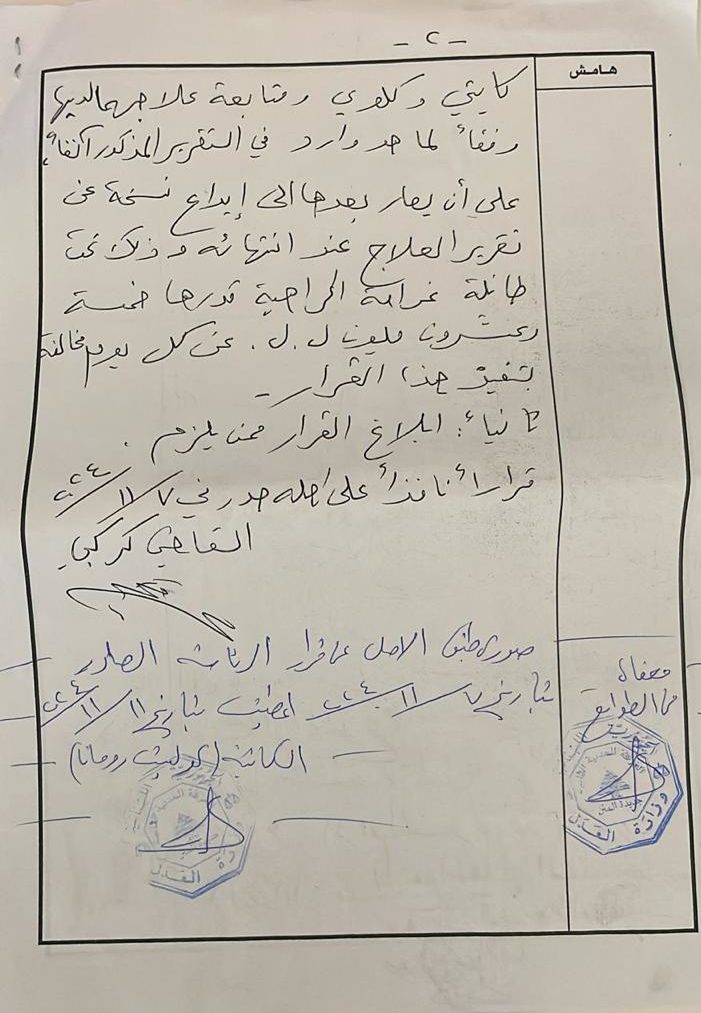 - ٢ -
هامش
كايتي وكلوي ومتابعة علاجهما لديها
وفقاً لما هو وارد في التقرير المذكور آنفاً،
على أن يصار بعدها الى إيداع نسخة عن
تقرير العلاج عند انتهائه وذلك تحت
طائلة غرامة إكراهية قدرها خمسة
وعشرون مليون ل.ل. عن كل يوم مخالفة
بتنفيذ هذا القرار -
ثانياً: ابلاغ القرار ممن يلزم.
قراراً نافذاً على أصله صدر في ٧/١١/٢٠٢٤
القاضي كركبي
صورة طبق الاصل عن قرار الرئاسة الصادر
بتاريخ ٧/١١/٢٠٢٤ اعطيت بتاريخ ١١/١١/٢٠٢٤
الكاتبة (جوليت رومانا)
معفاة
من الطوابع
وزارة العدل
وزارة العدل